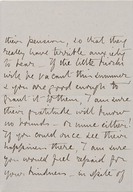 their pension, so that they
really have terrible anxiety
to bear. If the little
will be vacant this summer
& you are good enough to
grant it to them, I am sure
their gratitude will know
no bounds – or mine either!
If you could once see their
happiness there, I am sure
you would feel repaid for
your kindness – in spite of